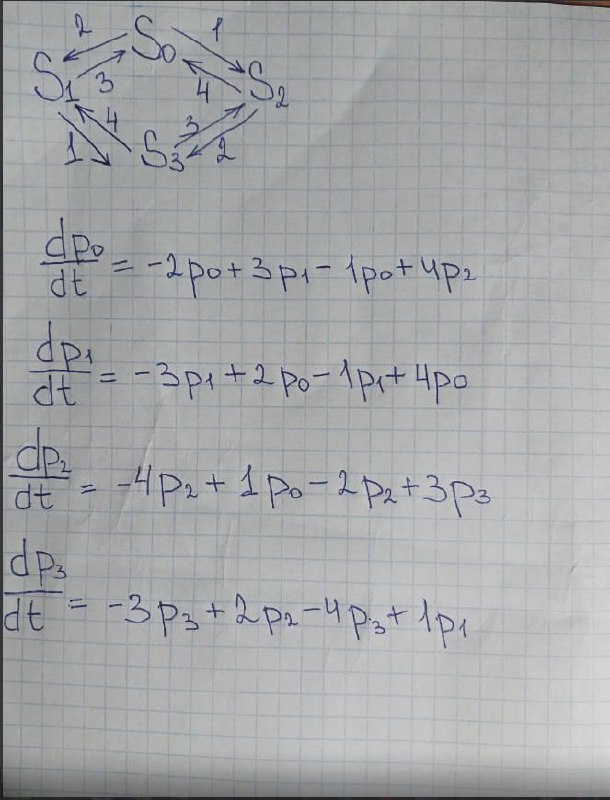 2 S₀ 1
S₁ 3 4 S₂
1 4 S₃ 3 2
dp₀/dt = -2p₀ + 3p₁ - 1p₀ + 4p₂
dp₁/dt = -3p₁ + 2p₀ - 1p₁ + 4p₀
dp₂/dt = -4p₂ + 1p₀ - 2p₂ + 3p₃
dp₃/dt = -3p₃ + 2p₂ - 4p₃ + 1p₁